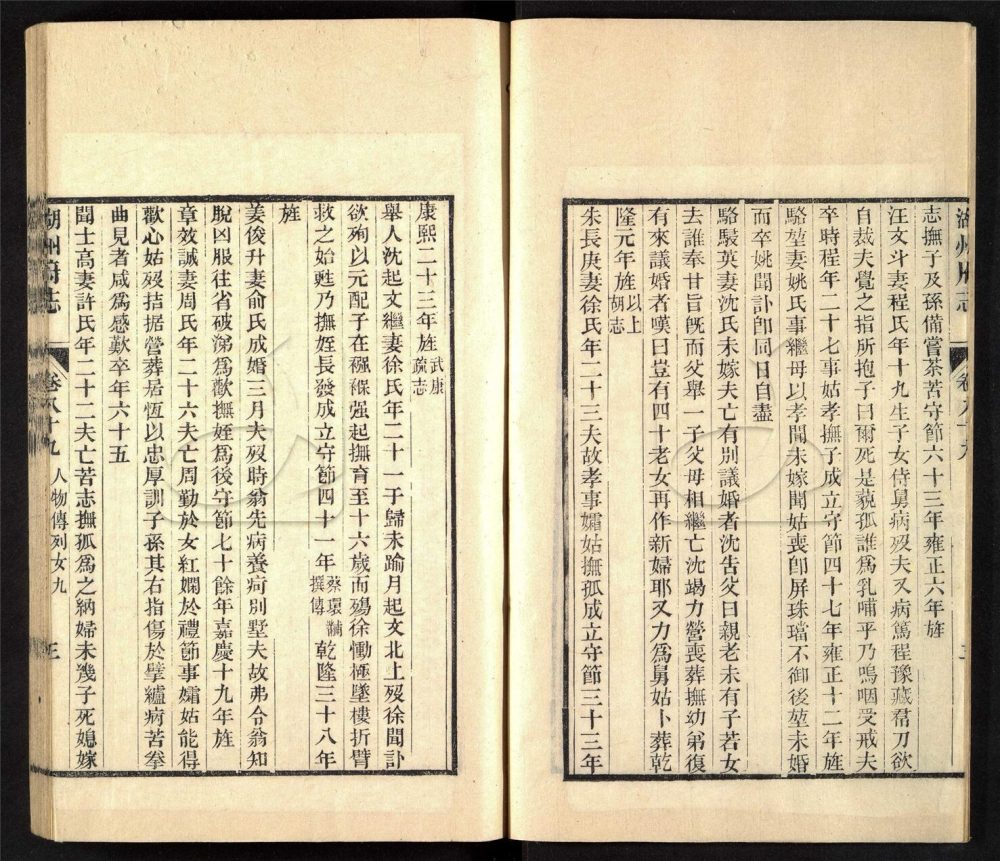 湖州府志 卷八十九 三
志撫子及孫備嘗荼苦守節六十三年雍正六年旌
汪文斗妻程氏年十九生子女侍舅病歿夫又病篤程豫藏帬刀欲
自裁夫覺之指所抱子曰爾死是藐孤誰爲乳哺乎乃嗚咽受戒夫
卒時程年二十七事姑孝撫子成立守節四十七年雍正十二年旌
駱堃妻姚氏事繼母以孝聞未嫁聞姑喪卽屏珠璫不御後堃未婚
而卒姚聞訃卽同日自盡
駱駸英妻沈氏未嫁夫亡有別議婚者沈告父曰親老未有子若女
去誰奉甘旨旣而父舉一子父母相繼亡沈竭力營喪葬撫幼弟復
有來議婚者嘆曰豈有四十老女再作新婦耶又力爲舅姑卜葬乾
隆元年旌以上胡志
朱長庚妻徐氏年二十三夫故孝事孀姑撫孤成立守節三十三年
康熙二十三年旌武康疏志
舉人沈起文繼妻徐氏年二十一于歸未踰月起文北上歿徐聞訃
欲殉以元配子在襁褓强起撫育至十六歲而殤徐慟極墜樓折臂
救之始甦乃撫姪長發成立守節四十一年蔡環黼撰傳乾隆三十八年
旌
姜俊升妻俞氏成婚三月夫歿時翁先病養疴別墅夫故弗令翁知
脫凶服往省破涕爲歡撫姪爲後守節七十餘年嘉慶十九年旌
章效誠妻周氏年二十六夫亡周勤於女紅嫺於禮節事孀姑能得
歡心姑歿拮据營葬居恆以忠厚訓子孫其右指傷於擘纑病苦拳
曲見者咸爲感歎卒年六十五
聞士高妻許氏年二十二夫亡苦志撫孤爲之納婦未幾子死媳嫁
湖州府志 卷八十九 人物傳列女九 三